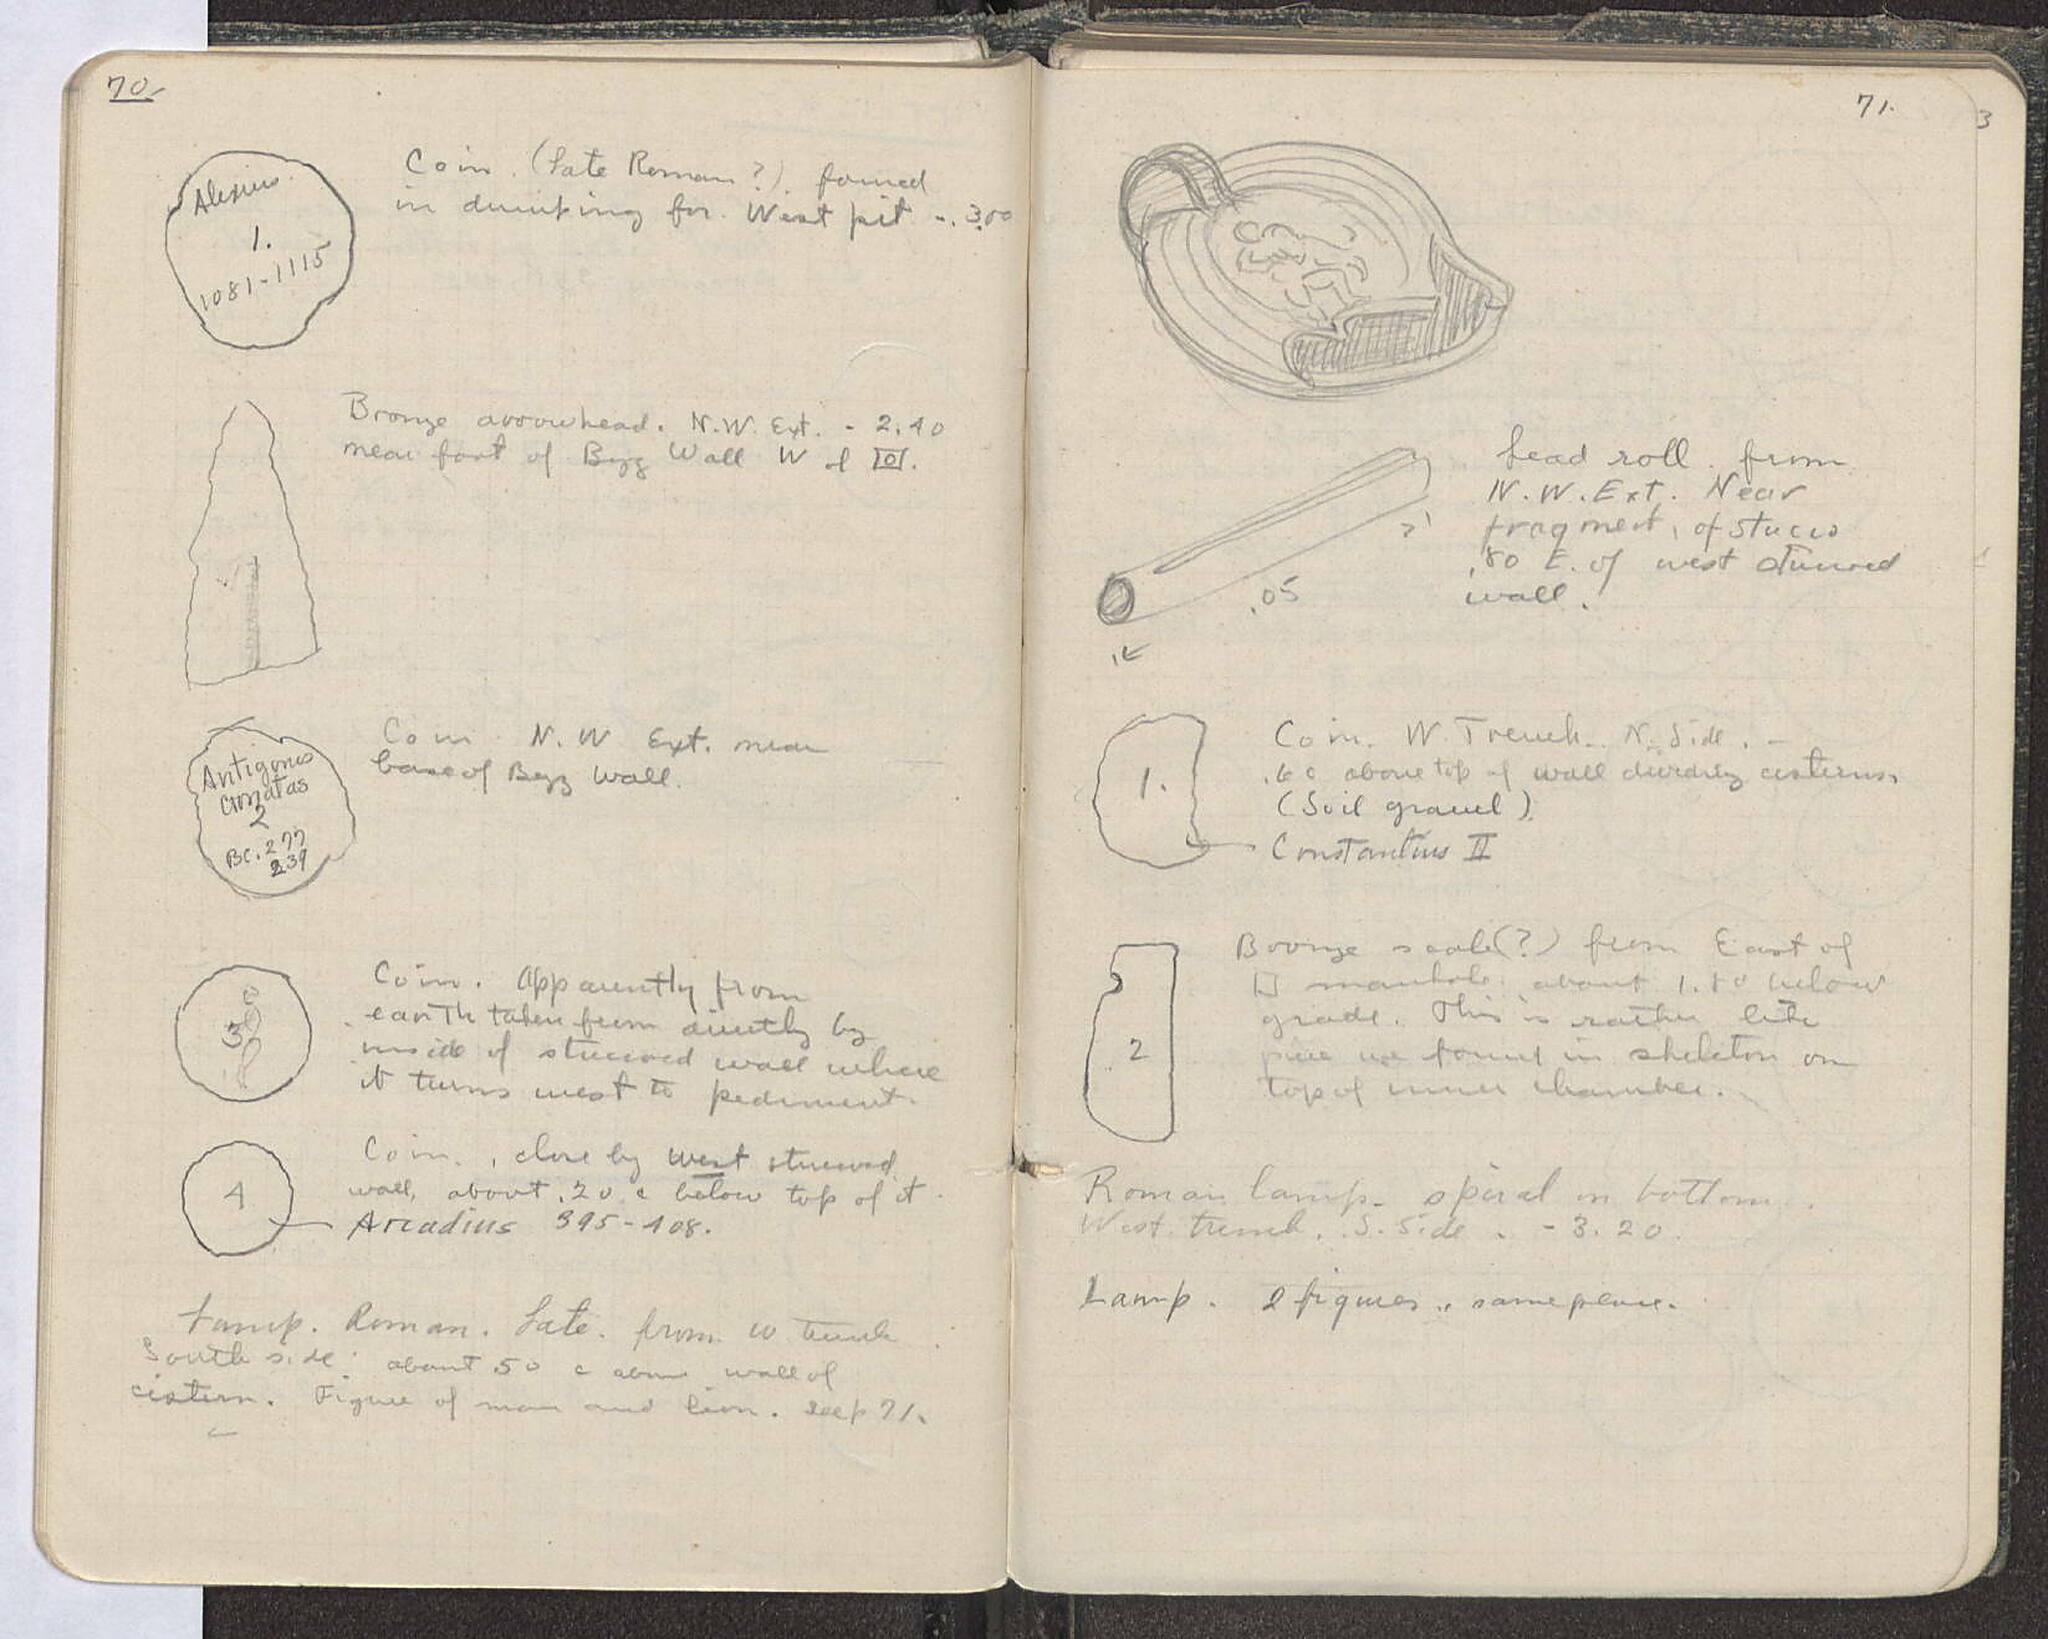 70
Alexius
1.
1081-1115
Coin. (Late Roman?). found
in dumping for West pit -. 3.00
Bronze arrowhead. N.W. Ext. - 2.40
near foot of Byz Wall W of
Antigonos
Gonatas
2
BC. 277
239
Coin N.W Ext. near
base of Byz Wall.
3
Coin. Apparently from
earth taken from directly by
inside of stuccoed wall where
it turns west to pediment.
4
Coin., close by west stuccoed
wall, about .20 c below top of it.
Arcadius 395-408.
Lamp. Roman. Late. from W trench
South side. about 50 c above wall of
cistern. Figure of man and lion. see p 71.
71.
3
Lead roll. from
N.W. Ext. Near
fragment, of stucco
.80 E. of west stuccoed
wall.
.05
1.
Coin. W. Trench. N. Side. -
.60 above top of wall dividing cisterns.
(Soil gravel)
Constantius II
2
Bronze scale(?) from East of
manhole. about 1.80 below
grade. This is rather like
piece we found in skeleton on
top of inner chamber.
Roman lamp. spiral on bottom.
West trench. S. Side. - 3.20.
Lamp. 2 figures., same place.